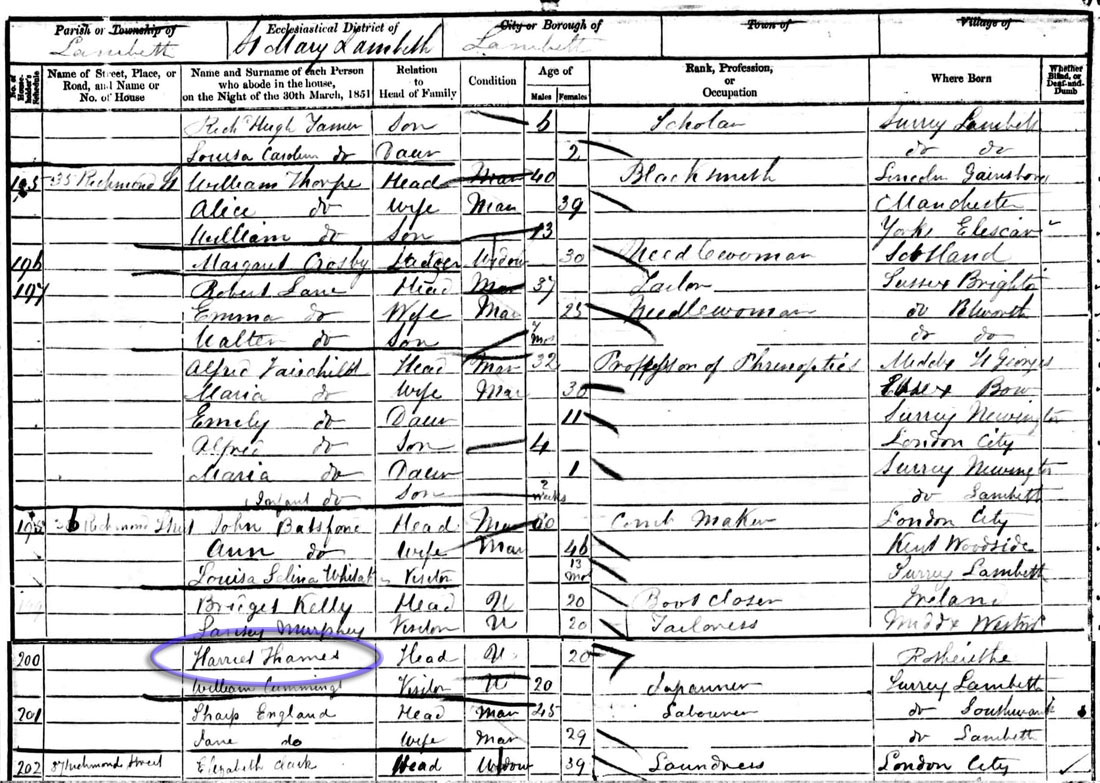 Parish or Township of Ecclesiastical District of City or Borough of Town of Village of
Lambeth St Mary Lambeth Lambeth
No. of House-holder's Schedule Name of Street, Place, or Road, and Name or No. of House Name and Surname of each Person who abode in the house, on the Night of the 30th March, 1851 Relation to Head of Family Condition Age of Males Females Rank, Profession, or Occupation Where Born Whether Blind, or Deaf-and-Dumb
Hugh Son 6 Scholar Surrey Lambeth
Louisa do Daur 2 do do
195 35 Richmond St William Thorpe Head Mar 40 Blacksmith Lincoln Gainsboro
Alice do Wife Mar 39 Manchester
William do Son 13 Yorks
196 Margaret Crosby Lodger Widow 30 Needlewoman Scotland
197 Robert Lane Head Mar 37 Tailor Sussex Brighton
Emma do Wife Mar 25 Needlewoman do
Walter do Son 7 Mos do do
Alfred Fairchild Head Mar 32 Professor of Middx St Georges
Maria do Wife Mar 30 Essex Bow
Emily do Daur 11 Surrey Newington
Alfred do Son 4 London City
Maria do Daur 1 Surrey Newington
Infant do Son 2 weeks do Lambeth
198 36 Richmond Street John Head Mar 60 Comb Maker London City
Ann do Wife Mar 46 Kent Woodside
Louisa Selina Visitor 13 Mos Surrey Lambeth
Bridget Kelly Head U 20 Boot Closer Ireland
Murphey Visitor U 20 Tailoress Middx
200 Harriet Thames Head U 20 Rotherithe
William Cummings Visitor U 20 Japanner Surrey Lambeth
201 Sharp England Head Mar 25 Labourer do Southwark
Jane do Wife Mar 29 do Lambeth
202 37 Richmond Street Elizabeth Clark Head Widow 39 Laundress London City